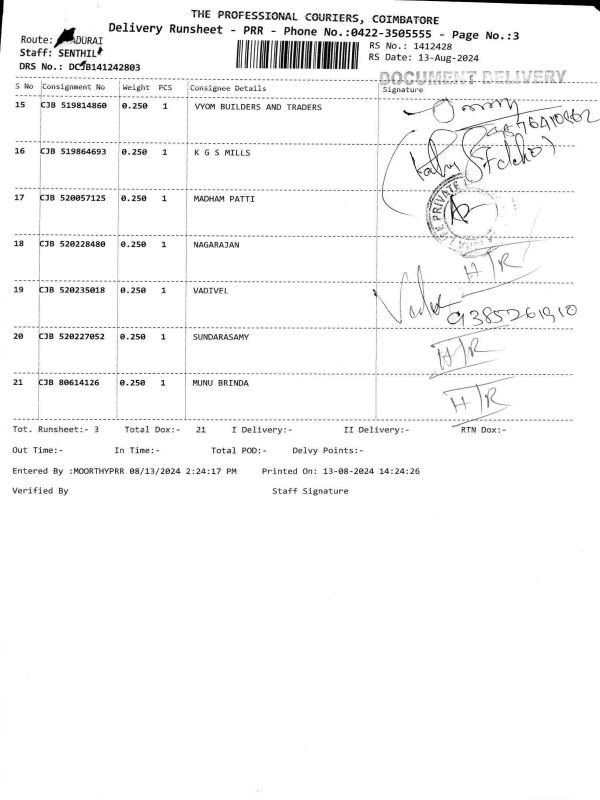 THE PROFESSIONAL COURIERS, COIMBATORE
Delivery Runsheet - PRR - Phone No.:0422-3505555 - Page No.:3
Route: ADURAI
RS No.: 1412428
Staff: SENTHIL
RS Date: 13-Aug-2024
DRS No.: DCJB141242803
DOCUMENT DELIVERY
S No Consignment No Weight PCS Consignee Details Signature
15 CJB 519814860 0.250 1 VYOM BUILDERS AND TRADERS
16 CJB 519864693 0.250 1 K G S MILLS
17 CJB 520057125 0.250 1 MADHAM PATTI
18 CJB 520228480 0.250 1 NAGARAJAN H/R
19 CJB 520235018 0.250 1 VADIVEL
9385261910
20 CJB 520227052 0.250 1 SUNDARASAMY H/R
21 CJB 80614126 0.250 1 MUNU BRINDA H/R
Tot. Runsheet:- 3 Total Dox:- 21 I Delivery:- II Delivery:- RTN Dox:-
Out Time:- In Time:- Total POD:- Delvy Points:-
Entered By :MOORTHYPRR 08/13/2024 2:24:17 PM Printed On: 13-08-2024 14:24:26
Verified By Staff Signature